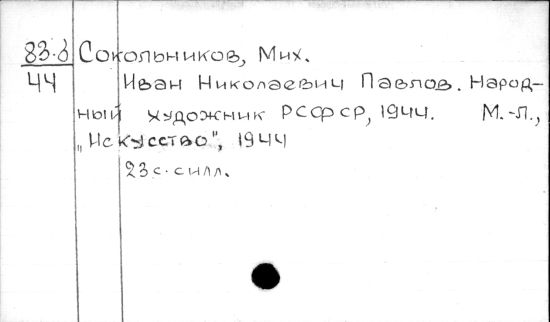 83.8 Сокольников, Мих.
44 Иван Николаевич Павлов. Народ-
ный художник РСФСР, 1944. М.-Л.,
„Искусство", 1944
23 с. силл.